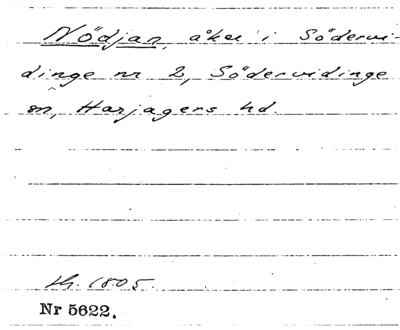 Nödjan, åker i Södervi-
dinge nr 2, Södervidinge
sn, Harjagers hd.
1805.
Nr 5622.